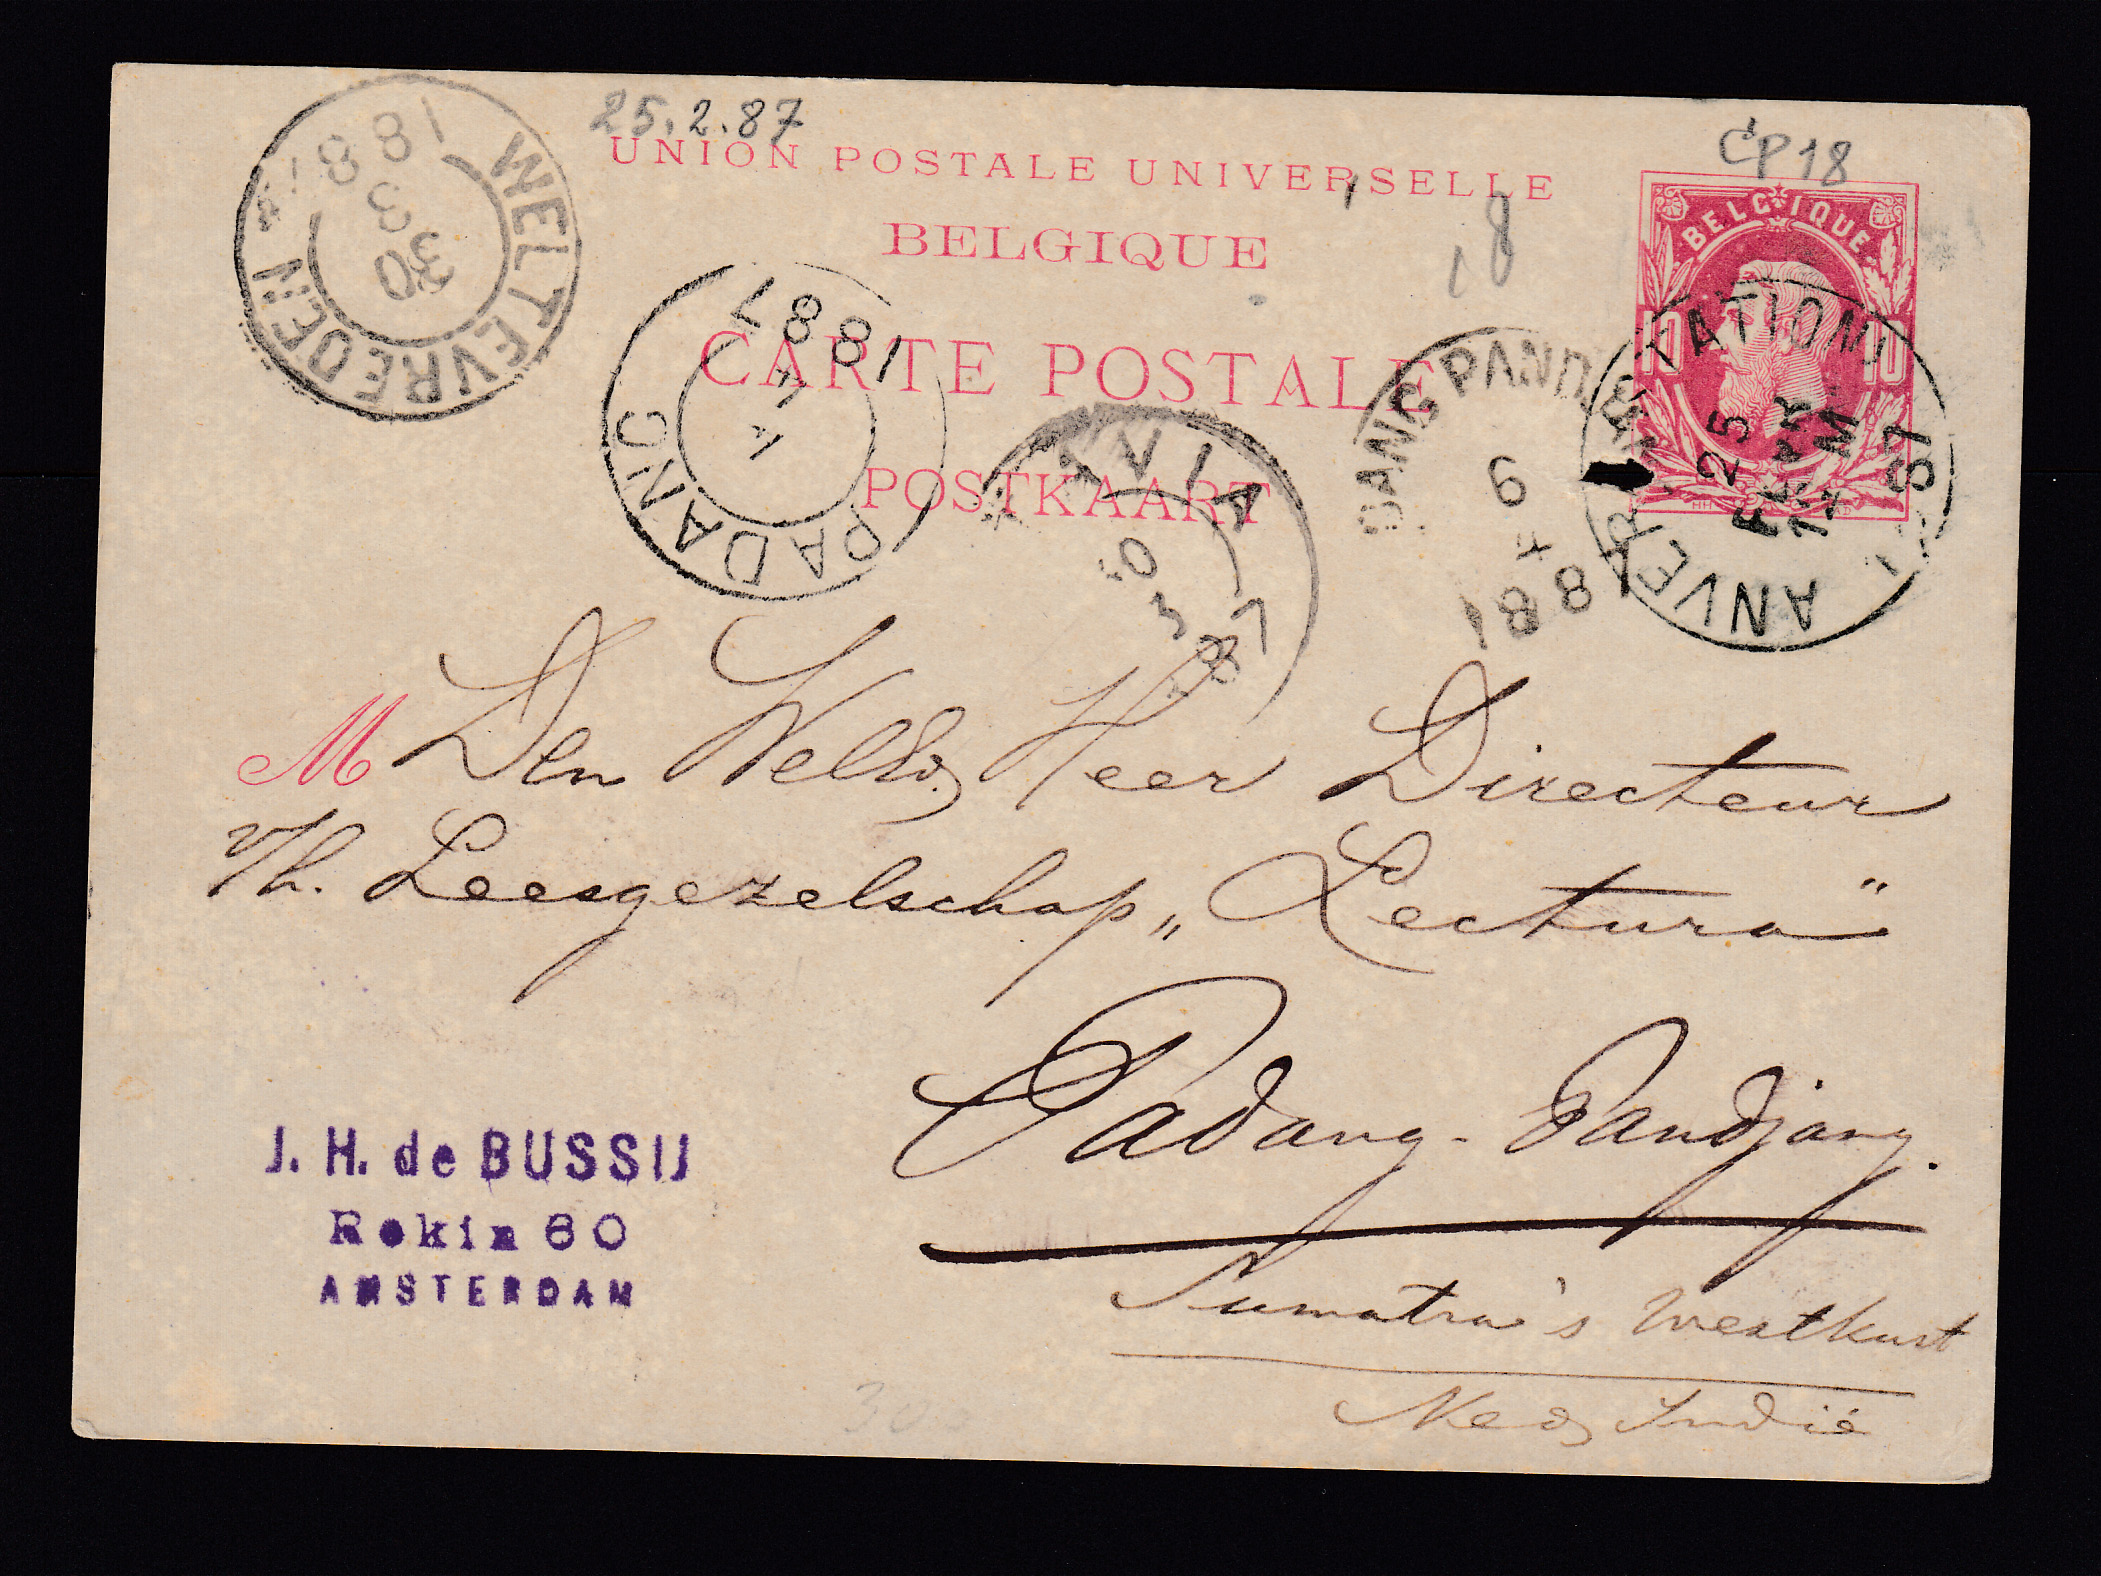 25.2.87
CP18
UNION POSTALE UNIVERSELLE
BELGIQUE
18
CARTE POSTALE
POSTKAART
BELGIQUE
10 10
WELTEVREDEN
30
3
1887
PADANG
4
1887
3
PADANG PAND
6
4
188
ANVERS STATION
25
FEVR
1887
M Den WelEd. Heer Directeur
v/h. Leesgezelschap „Lectura"
Padang-Pandjang.
Sumatra's Westkust
Ned Indië
J. H. de BUSSIJ
Rokin 60
AMSTERDAM
30